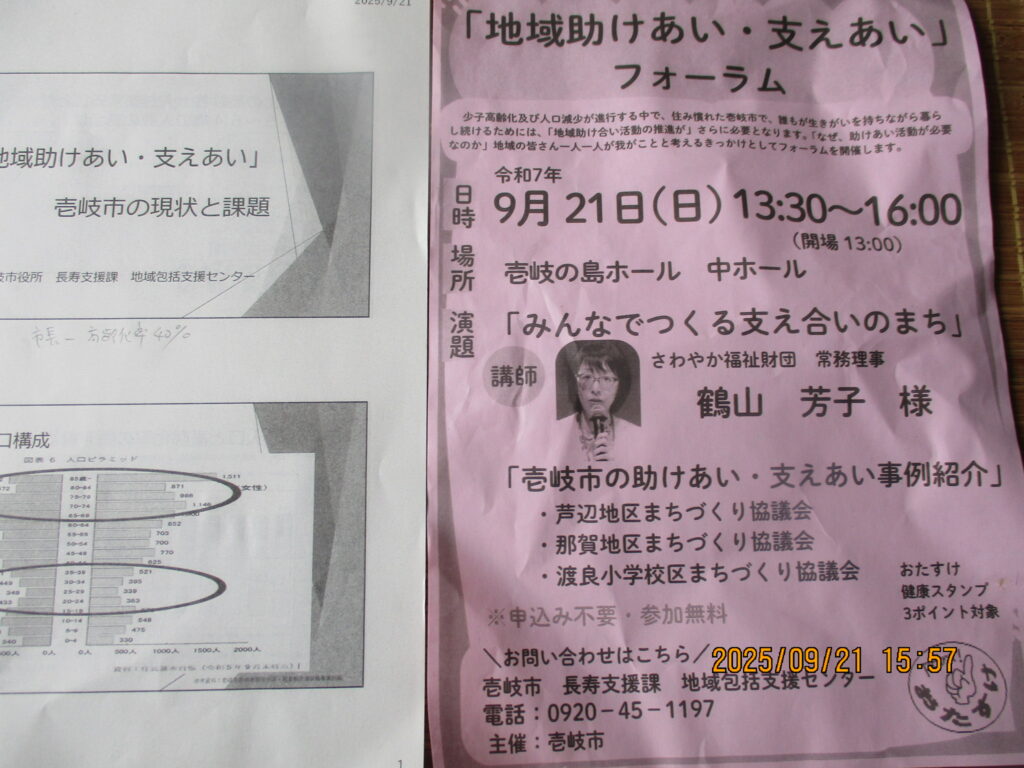 2025/9/21
地域助けあい・支えあい」
壱岐市の現状と課題
岐市役所 長寿支援課 地域包括支援センター
市長 - 高齢化率 40%
口構成
図表 6 人口ピラミッド
85歳~ 1,511
80-84 871
75-79 986
70-74 1,146
65-69
60-64 852
55-59 703
50-54 700
45-49 770
40-44 625
35-39 521
30-34 395
25-29 339
20-24 363
15-19
10-14 548
5-9 475
0-4 330
女性)
0人 0人 500人 1000人 1500人 2000人
1
「地域助けあい・支えあい」
フォーラム
少子高齢化及び人口減少が進行する中で、住み慣れた壱岐市で、誰もが生きがいを持ちながら暮ら
し続けるためには、「地域助け合い活動の推進が」さらに必要となります。「なぜ、助けあい活動が必要
なのか」地域の皆さん一人一人が我がことと考えるきっかけとしてフォーラムを開催します。
令和7年
日時 9月21日(日)13:30~16:00
(開場 13:00)
場所 壱岐の島ホール 中ホール
演題 「みんなでつくる支え合いのまち」
講師 さわやか福祉財団 常務理事
鶴山 芳子 様
「壱岐市の助けあい・支えあい事例紹介」
・芦辺地区まちづくり協議会
・那賀地区まちづくり協議会
・渡良小学校区まちづくり協議会
おたすけ
健康スタンプ
3ポイント対象
※申込み不要・参加無料
\お問い合わせはこちら/
壱岐市 長寿支援課 地域包括支援センター
電話:0920-45-1197
主催:壱岐市
おたすけ
2025/09/21 15:57